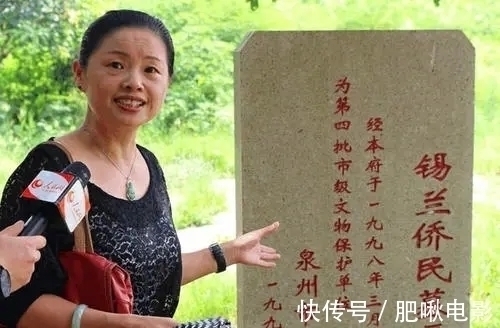 锡兰侨民
经本府于一九九八年三月
为第四批市级文物保护单
泉州
一九
快传号 / 肥啾电影